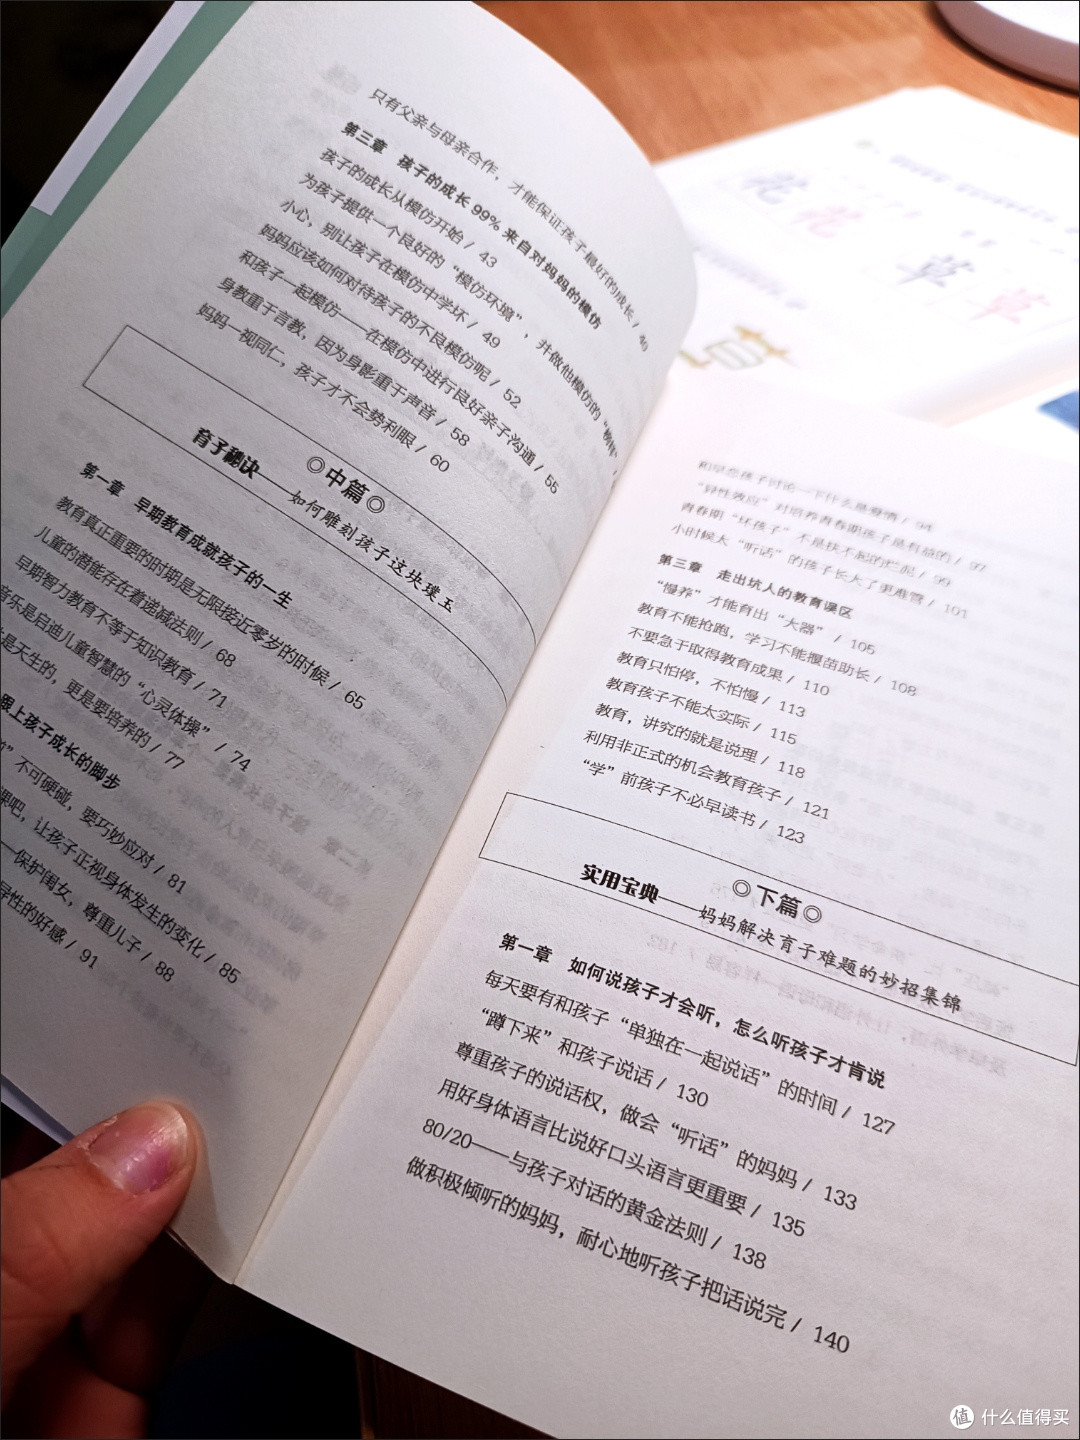 只有父亲与母亲合作，才能保证孩子最好的成长 / 40
第三章 孩子的成长 99% 来自对妈妈的模仿
孩子的成长从模仿开始 / 43
为孩子提供一个良好的“模仿环境”，并做他模仿的“榜样”
小心，别让孩子在模仿中学坏 / 49
妈妈应该如何对待孩子的不良模仿呢 / 52
和孩子一起模仿——在模仿中进行良好亲子沟通 / 55
身教重于言教，因为身影重于声音 / 58
妈妈一视同仁，孩子才不会势利眼 / 60
◎中篇◎
育子秘诀——如何雕刻孩子这块璞玉
第一章 早期教育成就孩子的一生
教育真正重要的时期是无限接近零岁的时候 / 65
儿童的潜能存在着递减法则 / 68
早期智力教育不等于知识教育 / 71
音乐是启迪儿童智慧的“心灵体操” / 74
是天生的，更是要培养的 / 77
跟上孩子成长的脚步
”不可硬碰，要巧妙应对 / 81
课吧，让孩子正视身体发生的变化 / 85
——保护闺女，尊重儿子 / 88
异性的好感 / 91
和早恋孩子讨论一下什么是爱情 / 94
“异性效应”对培养青春期孩子是有益的 / 97
青春期“坏孩子”不是扶不起的烂泥 / 99
小时候太“听话”的孩子长大了更难管 / 101
第三章 走出坑人的教育误区
“慢养”才能育出“大器” / 105
教育不能抢跑，学习不能揠苗助长 / 108
不要急于取得教育成果 / 110
教育只怕停，不怕慢 / 113
教育孩子不能太实际 / 115
教育，讲究的就是说理 / 118
利用非正式的机会教育孩子 / 121
“学”前孩子不必早读书 / 123
◎下篇◎
实用宝典——妈妈解决育子难题的妙招集锦
第一章 如何说孩子才会听，怎么听孩子才肯说
每天要有和孩子“单独在一起说话”的时间 / 127
“蹲下来”和孩子说话 / 130
尊重孩子的说话权，做会“听话”的妈妈 / 133
用好身体语言比说好口头语言更重要 / 135
80/20——与孩子对话的黄金法则 / 138
做积极倾听的妈妈，耐心地听孩子把话说完 / 140
花 花
草 草
值 什么值得买